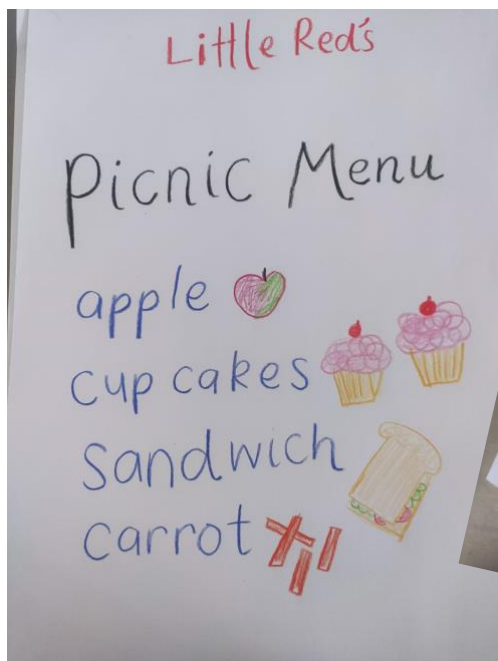 Little Red's
Picnic Menu
apple
cup cakes
sandwich
carrot